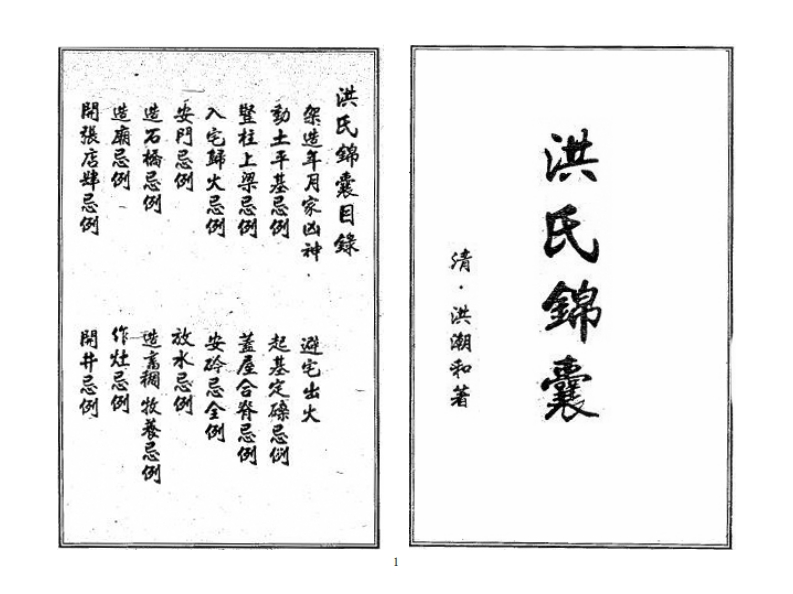 洪氏錦囊
清·洪潮和著
洪氏錦囊目錄
架造年月家凶神·
避宅出火
動土平基忌例
起基定磉忌例
豎柱上梁忌例
蓋屋合脊忌例
入宅歸火忌例
安砱忌全例
安門忌例
放水忌例
造石橋忌例
造畜稠牧養忌例
造廟忌例
作灶忌例
開張店肆忌例
開井忌例
1